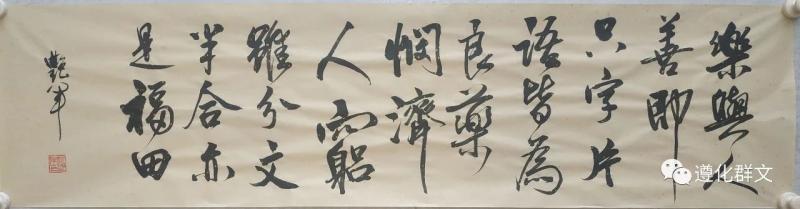 樂與人
善即
只字片
語皆為
良藥
憫濟
人窮
雖分文
半合亦
是福田
艷軍
遵化群文